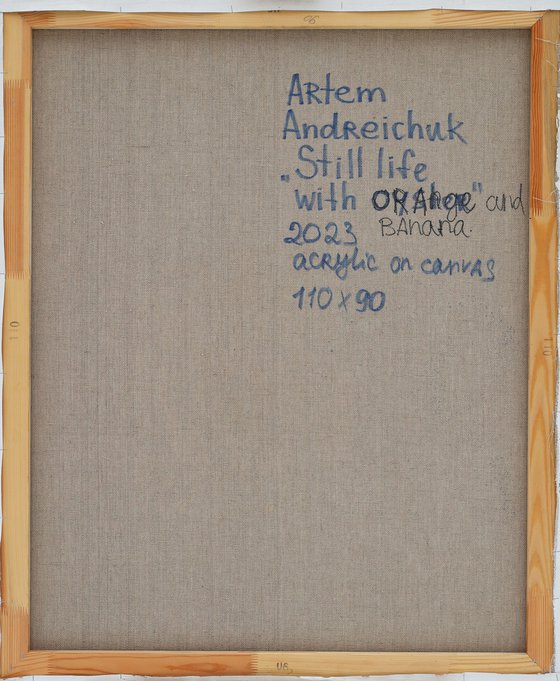 Artem
Andreichuk
„Still life
with ORAnge" and
BAnana.
2023
acrylic on canvas
110 x 90
110